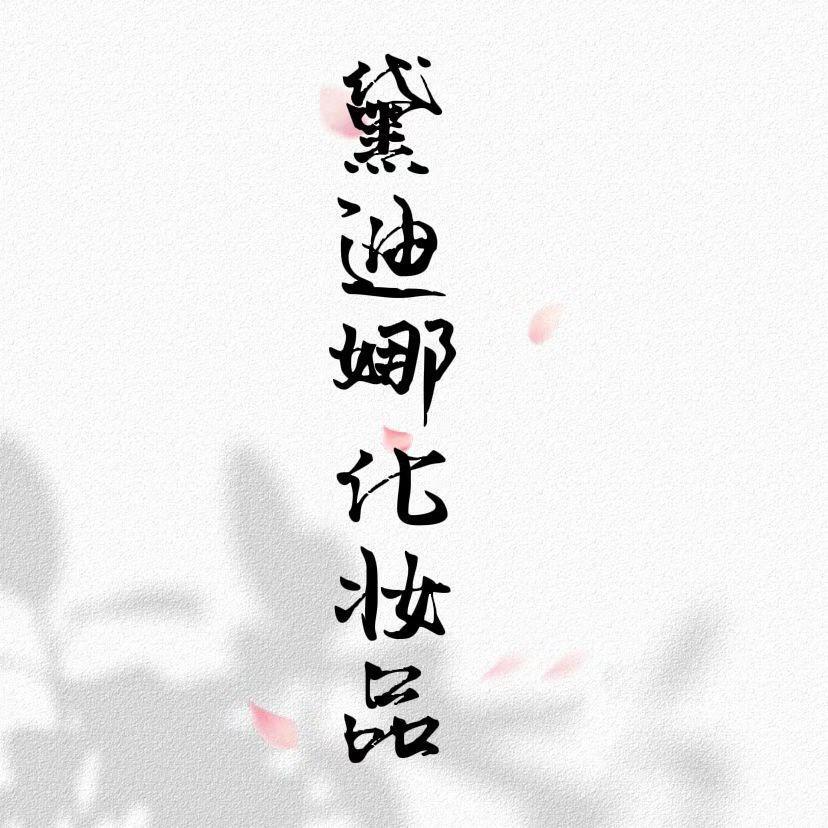 黛迪娜化妆品